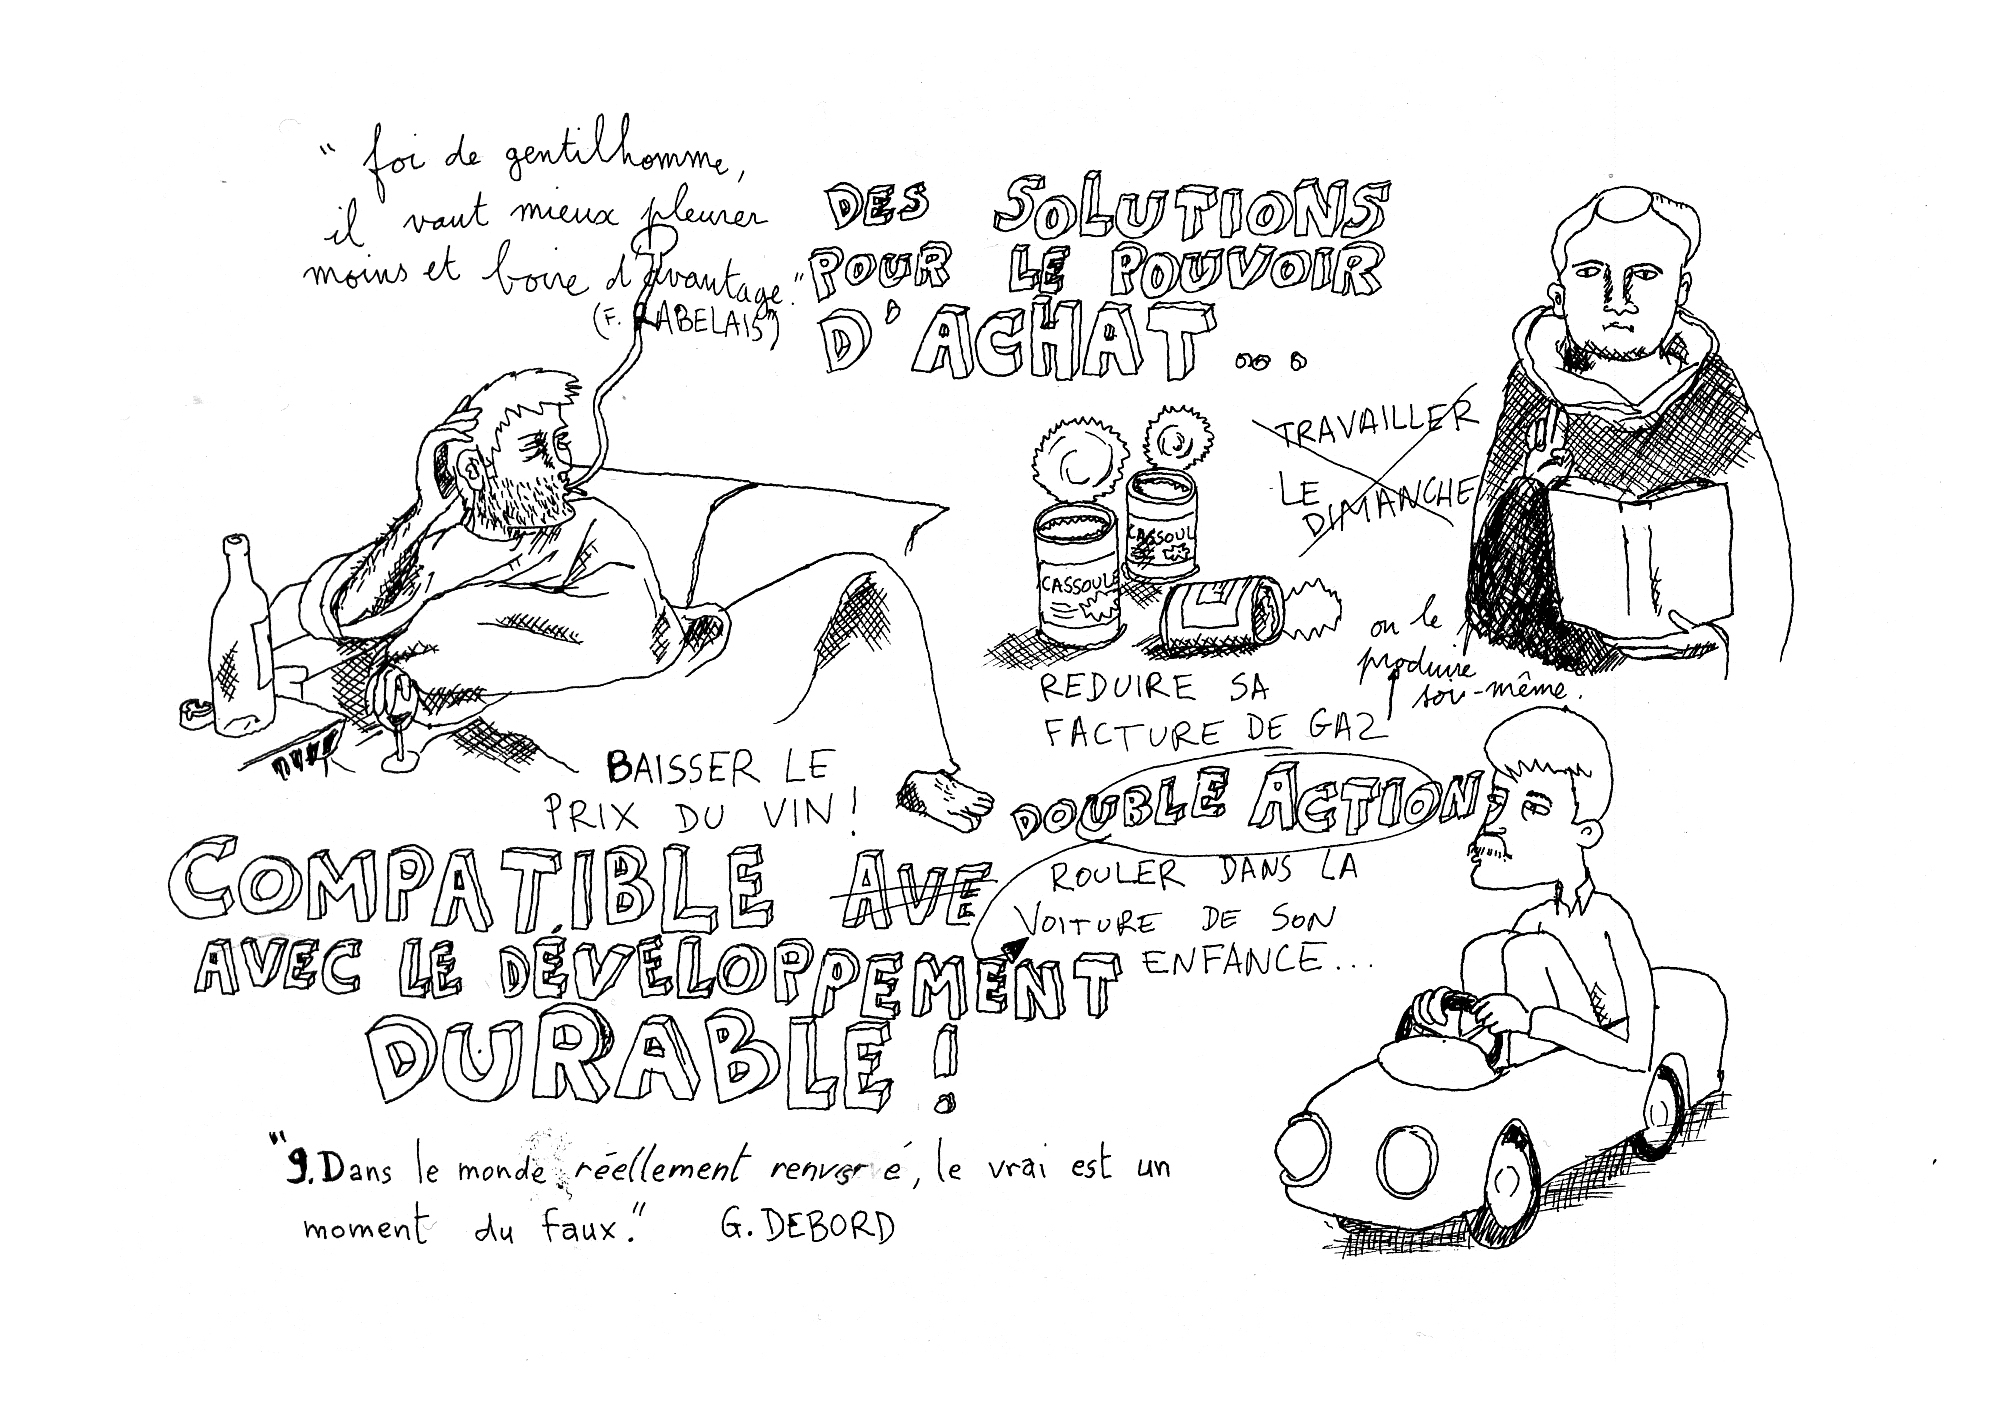 " foi de gentilhomme,
il vaut mieux pleurer
moins et boire d'avantage."
(F. RABELAIS)
DES SOLUTIONS
POUR LE POUVOIR
D'ACHAT...
TRAVAILLER
LE
DIMANCHE
CASSOUL
CASSOULE
ou le
produire
soi-même.
REDUIRE SA
FACTURE DE GAZ
BAISSER LE
PRIX DU VIN !
DOUBLE ACTION
ROULER DANS LA
VOITURE DE SON
ENFANCE...
COMPATIBLE AVE
AVEC LE DÉVELOPPEMENT
DURABLE !
"9. Dans le monde réellement renversé, le vrai est un
moment du faux." G. DEBORD